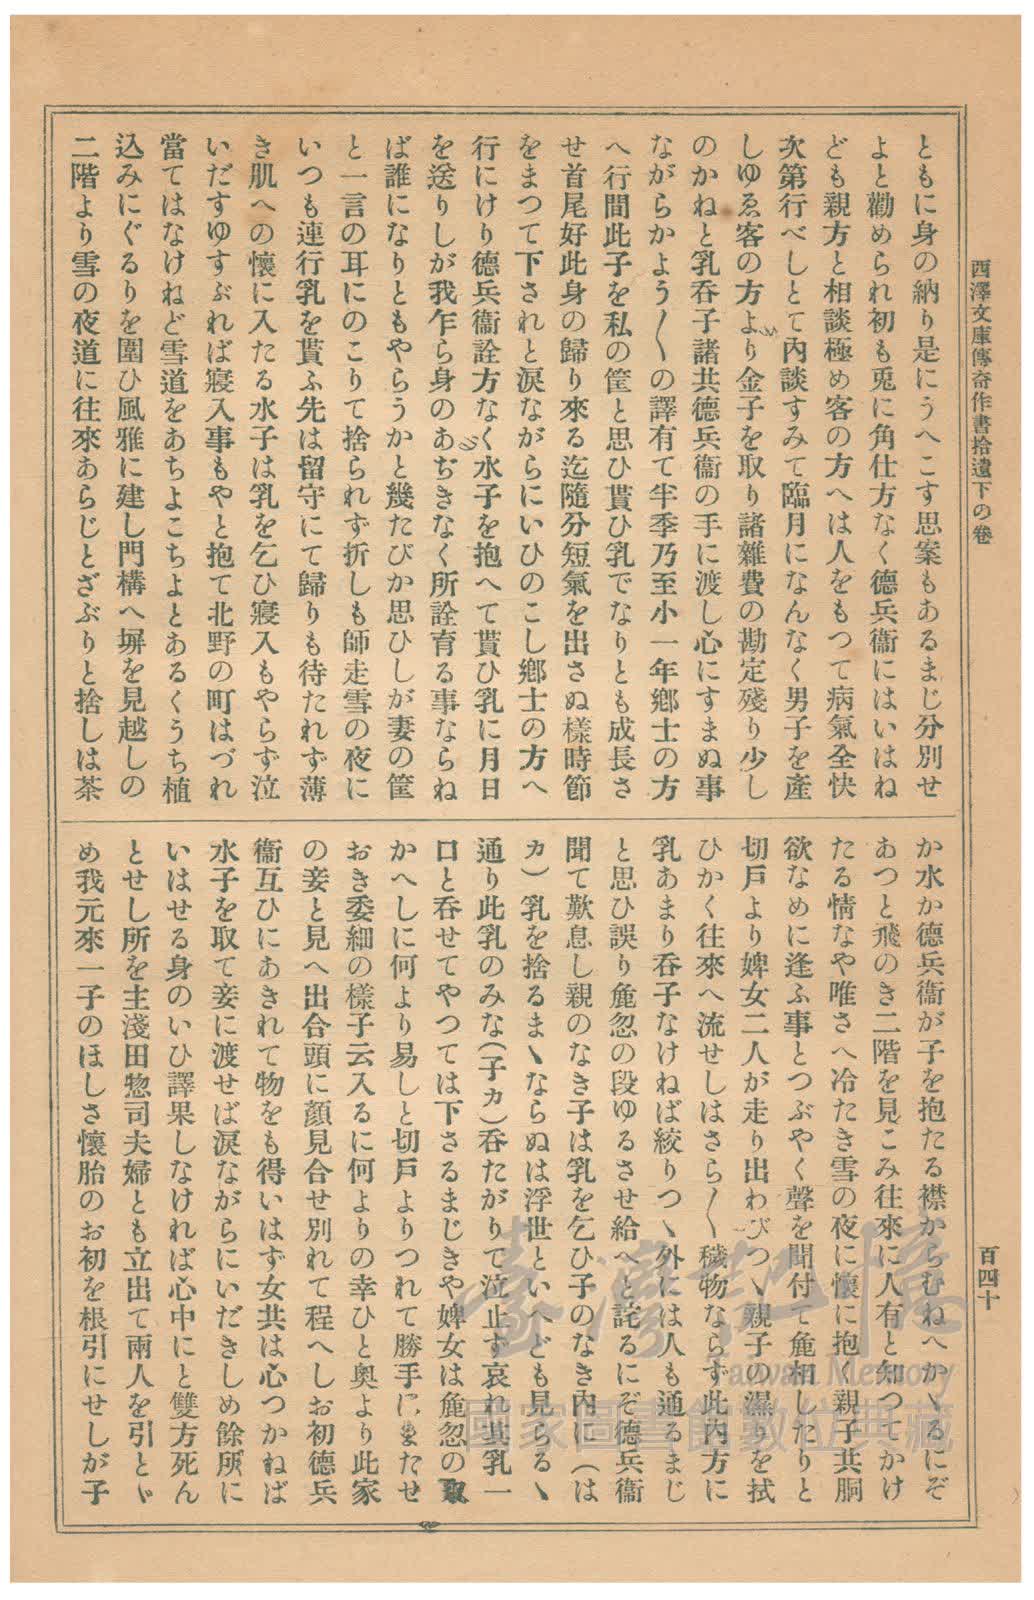 西澤文庫傳奇作書拾遺下の卷
百四十
ともに身の納り是にうへこす思案もあるまじ分別せ
よと勸められ初も兎に角仕方なく德兵衞にはいはね
ども親方と相談極め客の方へは人をもつて病氣全快
次第行べしとて內談すみて臨月になんなく男子を產
しゆゑ客の方より金子を取り諸雜費の勘定殘り少し
のかねと乳呑子諸共德兵衞の手に渡し心にすまぬ事
ながらかよう〳〵の譯有て半季乃至小一年鄕士の方
へ行間此子を私の筐と思ひ貰ひ乳でなりとも成長さ
せ首尾好此身の歸り來る迄隨分短氣を出さぬ樣時節
をまつて下されと淚ながらにいひのこし鄕士の方へ
行にけり德兵衞詮方なく水子を抱へて貰ひ乳に月日
を送りしが我乍ら身のあぢきなく所詮育る事ならね
ば誰になりともやらうかと幾たびか思ひしが妻の筐
と一言の耳にのこりて捨られず折しも師走雪の夜に
いつも連行乳を貰ふ先は留守にて歸りも待たれず薄
き肌への懷に入たる水子は乳を乞ひ寢入もやらず泣
いだすゆすぶれば寢入事もやと抱て北野の町はづれ
當てはなけねど雪道をあちよこちよとあるくうち植
込みにぐるりを圍ひ風雅に建し門構へ塀を見越しの
二階より雪の夜道に往來あらじとざぶりと捨しは茶
か水か德兵衞が子を抱たる襟からむねへかヽるにぞ
あつと飛のき二階を見こみ往來に人有と知つてかけ
たる情なや唯さへ冷たき雪の夜に懷に抱く親子共胴
欲なめに逢ふ事とつぶやく聲を聞付て麁相したりと
切戶より婢女二人が走り出わびつヽ親子の濕りを拭
ひかく往來へ流せしはさら〳〵穢物ならず此內方に
乳あまり呑子なければ絞りつヽ外には人も通るまじ
と思ひ誤り麁忽の段ゆるさせ給へと詫るにぞ德兵衞
聞て歎息し親のなき子は乳を乞ひ子のなき內に(は
カ)乳を捨るまヽならぬは浮世といへども見らるヽ
通り此乳のみな(子カ)呑たがりて泣止ず哀れ其乳一
口と呑せてやつては下さるまじきや婢女は麁忽の取
かへしに何より易しと切戶よりつれて勝手にまたせ
おき委細の樣子云入るに何よりの幸ひと奧より此家
の妾と見へ出合頭に顏見合せ別れて程へしお初德兵
衞互ひにあきれて物をも得いはず女共は心つかねば
水子を取て妾に渡せば淚ながらにいだきしめ餘所に
いはせる身のいひ譯果しなければ心中にと雙方死ん
とせし所を主淺田惣司夫婦とも立出て兩人を引とゞ
め我元來一子のほしさ懷胎のお初を根引にせしが子